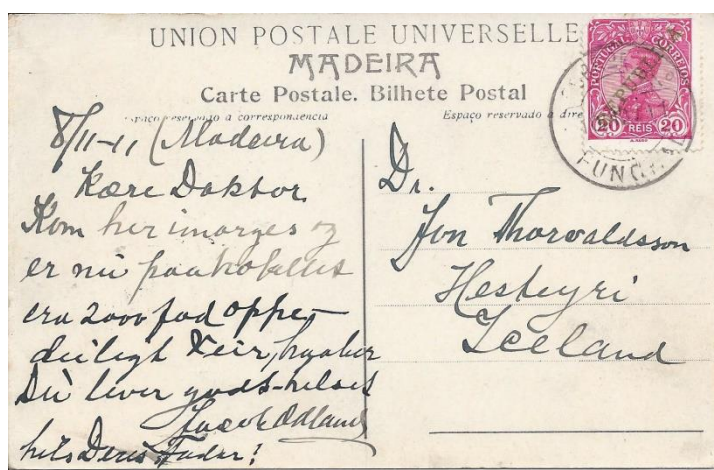 UNION POSTALE UNIVERSELLE
MADEIRA
Carte Postale. Bilhete Postal
Espaço reservado à correspondencia
Espaço reservado à dire
PORTUGAL CORREIOS
REPUBLICA
20 RÉIS 20
FUNCHAL
8/11-11 (Madeira)
Kære Doktor.
Kom her imorges og
er nu paa
2000 fod oppe
deiligt Veir,
Du lever godt-
hils Deres Fader!
Dr.
Jon Thorvaldsson
Hesteyri
Iceland